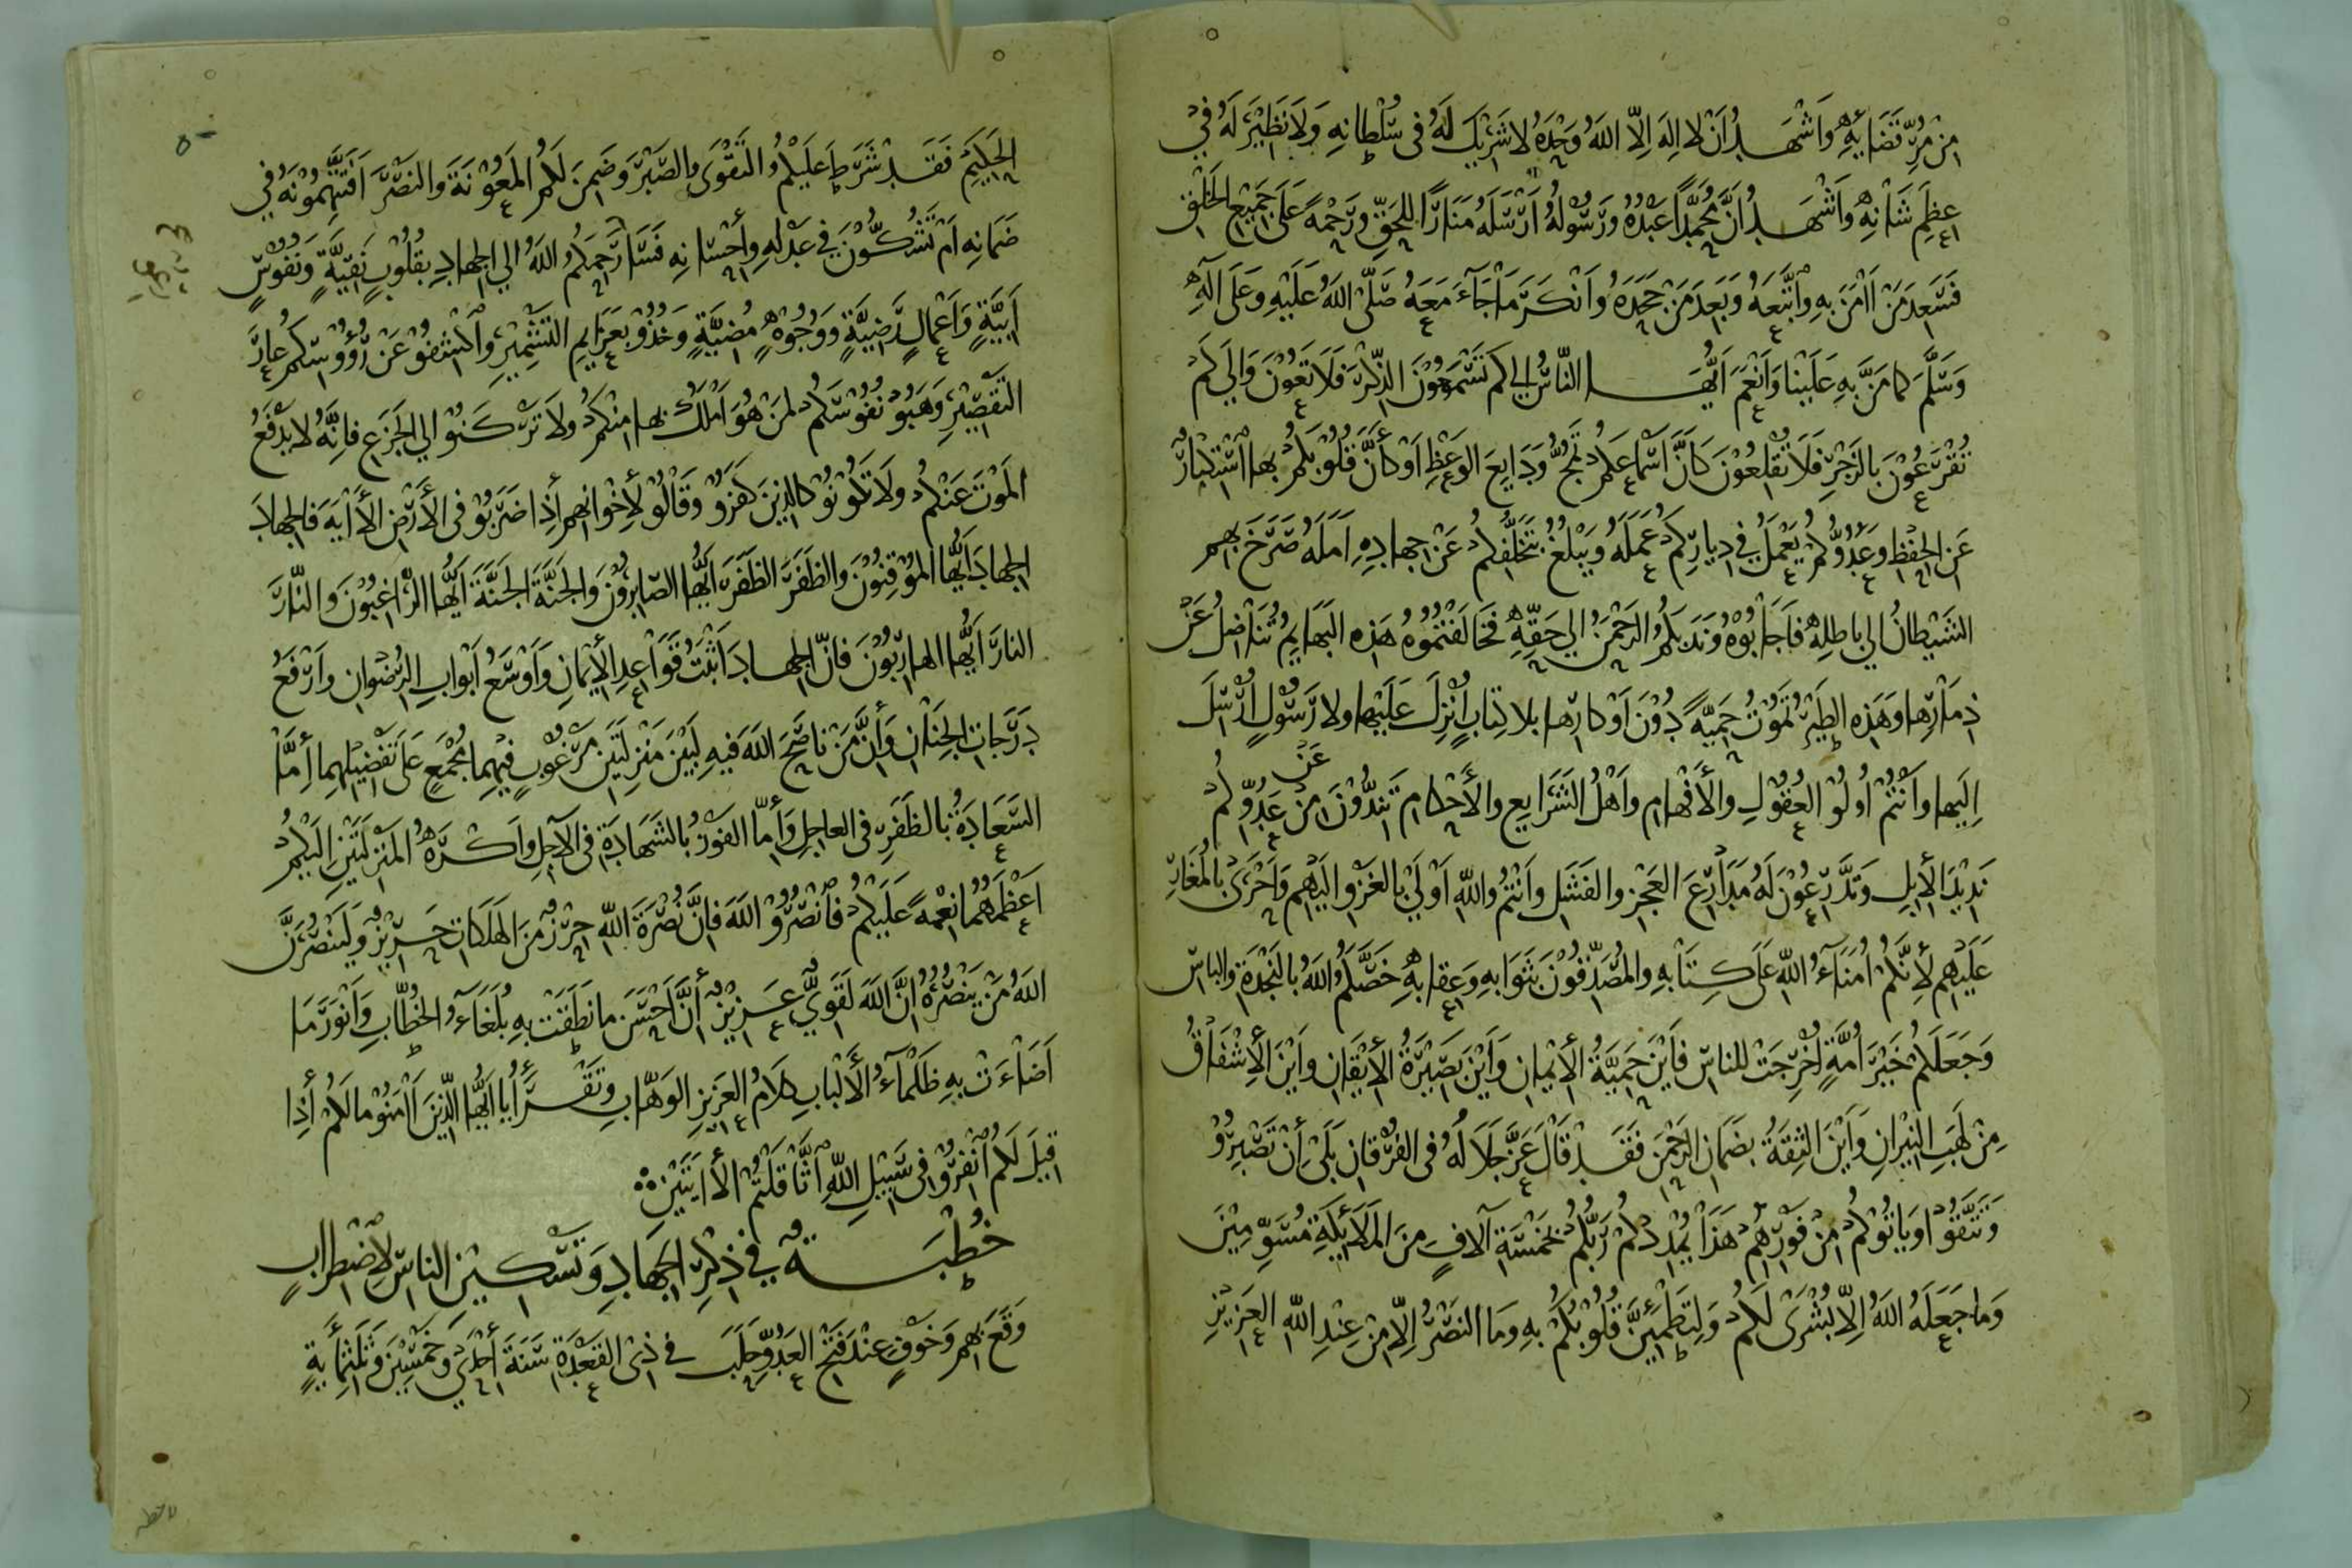 مِنْ مُرِّ قَضَائِهِ وَاَشْهَدُ اَنْ لا اِلهَ اِلّا اللهُ وَحْدَهُ لا شَرِيْكَ لَهُ فى سُلْطانِهِ وَلا نَظِيْرَ لَهُ فِيْ
عِظَمِ شَانِهِ وَاَشْهَدُ اَنَّ مُحَمَّدًا عَبْدُهُ وَرَسُوْلُهُ اَرْسَلَهُ مَنَارًا لِلْحَقِّ وَرَحْمَةً عَلَى جَمِيْعِ الخَلْقِ
فَسَعِدَ مَنْ اٰمَنَ بِهِ وَاتَّبَعَهُ وَبَعِدَ مَنْ جَحَدَهُ وَاَنْكَرَ مَا جَآءَ مَعَهُ صَلّى اللهُ عَلَيْهِ وَعَلَى آلِهِ
وَسَلَّمَ كما مَنَّ بِهِ عَلَيْنا وَاَنْعَمَ اَيُّهَا النّاسُ الي كم تَسْمَعُوْنَ الذِّكْرَ فَلا تَعُوْنَ وَالَي كَمْ
تُقْرَعُوْنَ بالزَجْرِ فَلا تُقْلِعُوْنَ كَانَّ اَسْماعَكمُ تَمُجُّ وَدَايِعَ الوَعْظِ اَوْ كأَنَّ قُلُوْبَكُمْ بها اسْتِكْبارٌ
عَنِ الحِفْظِ وَعَدُوُّكُمْ يُعْمِلُ فِي دِيارِكمْ عَمَلَهُ وَيَبْلُغُ بتَخَلُّفِكُمْ عَنْ جِهادِهِ اَمَلَهُ صَرَخَ بهم
الشَيْطانُ الي باطِلِهِ فَاَجابُوْهُ وَنَدَبَكُمُ الرَحْمنُ الي حَقِّهِ فَخالَفْتُمُوْهُ هَذِهِ البَهَايِمُ تُنَاضِلُ عَنْ
ذِمَارِها وَهَذِهِ الطَيْرُ تَمُوْتُ حَمِيَّةً دُوْنَ اَوْكارِها بِلا كِتابٍ اُنْزِلَ عَلَيْها ولا رَسُوْلٍ اُرْسِلَ
اِلَيها وَاَنْتُمْ اُولُوْ العُقُوْلِ وَالأَفْهامِ وَاَهْلُ الشَرَايِعِ والأَحْكامِ تَنِدُّوْنَ مِنْ عَنْ عَدُوِّكُمْ
نَدِيْدَ الأِبِلِ وَتَدَّرِعُوْنَ لَهُ مَدَارِعَ العَجْزِ والفَشَلِ وَاَنْتُمْ واللهِ اَوْلَيْ بالغَزْوِ الَيْهِمْ وَاَحْرَى بالمُغَارِ
عَلَيْهِم لأِنَّكُمْ اُمَنَآءُ اللهِ عَلَى كِتَابِهِ وَالمُصَدِّقُوْنَ بثَوَابِهِ وَعِقابِهِ خَصَّكُمُ اللهُ بالنَجْدَةِ وَالباسِ
وَجَعَلَكُمْ خَيْرَ اُمَّةٍ اُخْرِجَتْ للناسِ فَاَيْنَ حَمِيَّةُ الأِيْمانِ وَاَيْنَ بَصِيْرَةُ الأِيْقَانِ وَاَيْنَ الأِشْفَاقُ
مِنْ لَهَبِ النِيْرانِ وَاَيْنَ الثِقَةُ بضَمَانِ الرَحْمَنِ فَقَدْ قَالَ عَزَّ جَلالُهُ فى الفُرْقانِ بَلَىْ اِنْ تَصْبِرُوْ
وَتَتَّقُوْا وَيَاتُوْكُمْ مِنْ فَوْرِهِمْ هَذَا يُمْدِدْكُمْ رَبُّكُمْ بِخَمْسَةِ آلافٍ مِنَ المَلائِكَةِ مُسَوِّمِيْنَ
وَما جَعَلَهُ اللهُ اِلّا بُشْرَىْ لَكُمْ وَلِتَطْمَئِنَّ قُلُوْبُكُمْ بِهِ وَمَا النَصْرُ اِلّا مِنْ عِنْدِ اللهِ العَزِيْزِ
الحَكِيْمِ فَقَدْ شَرَطَ عَلَيْكُمُ التَقْوَى والصَبْرَ وَضَمِنَ لَكُمُ المَعُوْنَةَ والنَصْرَ اَفَتَتَّهِمُوْنَهُ فِي
ضَمانِهِ اَمْ تَشُكُّوْنَ فِي عَدْلِهِ وأحْسَانِهِ فَسَارِعُوا رَحِمَكُمُ اللهُ الي الجهادِ بِقُلُوْبٍ نَقِيَّةٍ وَنُفُوْسٍ
اَبِيَّةٍ وَاَعْمالٍ رَضِيَّةٍ وَوُجُوْهٍ مُضِيَّةٍ وَخُذُوْ بعَزَايِمِ التَشْمِيْرِ وَاكْشِفُوْ عَنْ رُؤُوْسِكُمْ عارَ
التَقْصِيْرِ وَهَبُوْ نُفُوْسَكُمْ لِمَنْ هُوَ اَمْلَكُ بها مِنْكُمْ ولا تَرْكَنُوْ الي الجَزَعِ فاِنَّهُ لا يَدْفَعُ
المَوْتَ عَنْكُمْ ولا تَكُوْنُوْ كالذِيْنَ كَفَرُوْ وَقَالُوْ لأِخْوانِهِم أِذا ضَرَبُوْ فى الأَرْضِ الأَايَه فَالجِهادَ
الجِهادَ اَيُّها المُوْقِنُوْنَ والظَفَرَ الظَفَرَ اَيُّها الصّابِرُوْنَ وَالجَنَّةَ الجَنَّةَ اَيُّها الرّاغِبُوْنَ والنّارَ
النارَ اَيُّها الهارِبُوْنَ فَانّ الجِهادَ اَثْبَتُ قَوَاعِدِ الأِيْمانِ وَاَوْسَعُ اَبْوابِ الرُضْوانِ وَاَرْفَعُ
دَرَجاتِ الجِنَانِ وأِنَّ مَنْ ناصَحَ اللهَ فيهِ لَبَيْنَ مَنْزِلَتَيْنِ مَرْغُوْبٍ فيْهِما مُجْمَعٍ عَلَى تَفْضِيْلِهِما أِمَّا
السَعَادَةُ بالظَفَرِ فى العاجِلِ وَأِمّا الفَوْزُ بالشَهادَةِ فى الآجِلِ وَاَكْرَهُ المَنْزِلَتَيْنِ اِلَيْكُمْ
اَعْظَمُهُما نِعْمةً عَلَيْكُمْ فانْصُرُوْ اللهَ فانَّ نُصْرَةَ اللهِ حِرْزٌ مِنَ الهَلَكاتِ حَرِيْزٌ وَلَيَنْصُرَنَّ
اللهُ مَنْ يَنْصُرُهُ اِنَّ اللهَ لَقَوِيٌّ عَزِيْزٌ أِنَّ اَحْسَنَ ما نَطَقَتْ بِهِ بُلَغَآءُ الخُطَّابِ وَاَنْوَرَ مَا
اَضَاءَتْ بِهِ ظَلْمآءُ الأَلْبابِ كلامُ العَزِيزِ الوَهّابِ وتَقْرَأُ يا اَيُّها الذّيْنَ اٰمَنُوْ ما لَكُمْ أِذا
قيلَ لكُمُ انْفِرُوْ فى سَبِيْلِ اللهِ اثّاقَلْتُمْ الأايَتَيْنِ
خُطْبَةٌ فِي ذِكْرِ الجِهادِ وَتَسْكِيْنِ الناسِ لِاضْطِرابٍ
وَقَعَ بِهِم وَخَوْفٍ عِنْدَ فَتْحِ العَدُوِّ حَلَبَ فى ذى القَعْدَةِ سَنَةَ أِحْدَي وخَمْسِيْنَ وثَلثِمأيةٍ